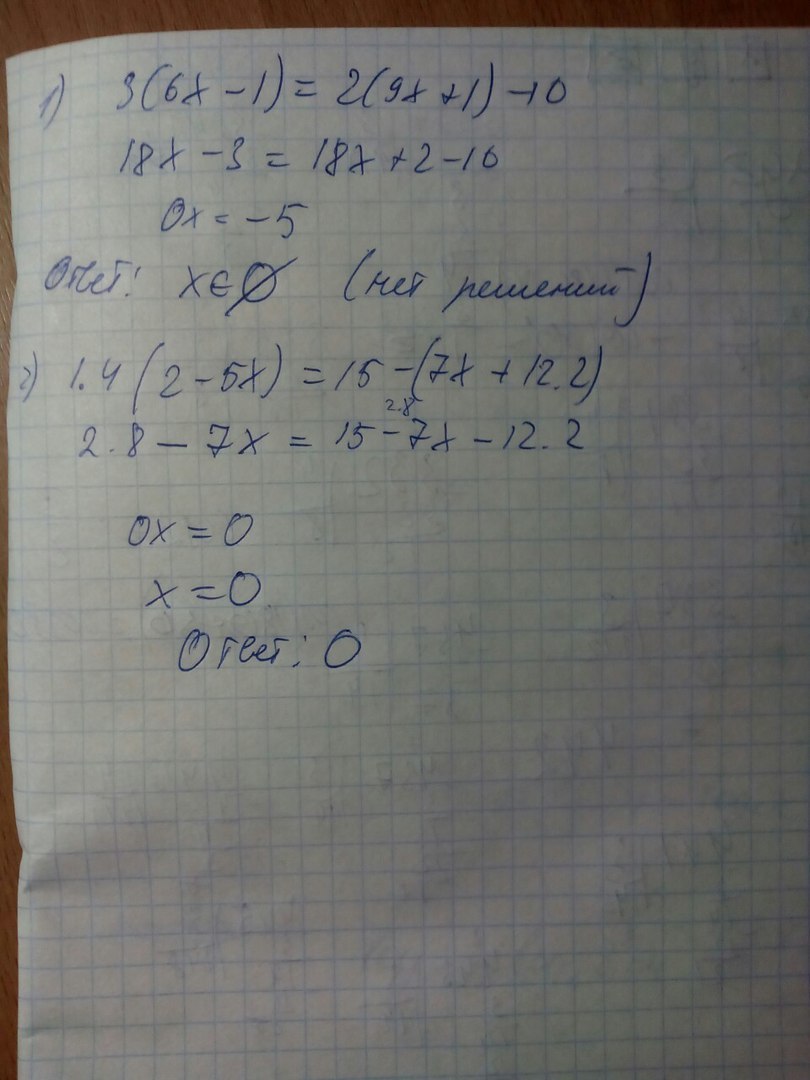 1) 3(6x - 1) = 2(9x + 1) - 10
18x - 3 = 18x + 2 - 10
0x = -5
Ответ: x ∈ ∅ (нет решений)
2) 1.4(2 - 5x) = 15 - (7x + 12.2)
2.8
2.8 - 7x = 15 - 7x - 12.2
0x = 0
x = 0
Ответ: 0